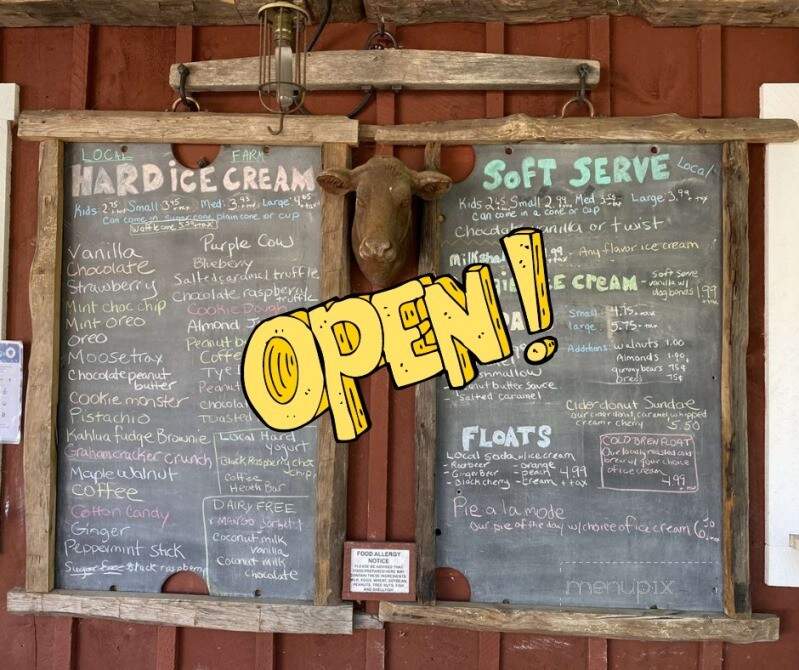 LOCAL FARM
HARD iCE CREAM
Kids 2.75 Small 3.45 Med. 3.95 Large 4.05
Can come in sugar cone, plain cone or cup
Vanilla
Chocolate
Strawberry
Mint choc chip
Mint oreo
Oreo
Moosetrax
Chocolate peanut
butter
Cookie monster
Pistachio
Kahlua fudge Brownie
Grahamcracker crunch
Maple walnut
Coffee
Cotton Candy
Ginger
Peppermint stick
Sugar free black raspberry
Purple Cow
Blueberry
Salted caramel truffle
Chocolate raspberry
truffle
Cookie Dough
Almond
Peanut
Coffee
Peanut
Toasted
Local Hard
Yogurt
Black Raspberry choc
chip
Coffee
Heath Bar
DAIRY FREE
MANGO Sorbet
Coconut milk
vanilla
Coconut milk
chocolate
OPEN!
SOFT SERVE Local
Kids 2.45 Small 2.99 Med 3.50 Large 3.99
Can come in a cone or cup
Chocolate vanilla or twist
Any flavor ice cream
ICE CREAM - Soft Serve
vanilla w/
dog bones 1.99
Small 4.75
large 5.75
Additions: walnuts 1.00
Almonds 1.00
gummy bears 75¢
Oreos 75¢
peanut butter sauce
salted caramel
Cider donut Sundae
our cider donut, caramel, whipped
cream + cherry 5.50
FLOATS
Local soda w/icecream
- Rootbeer - orange
- Ginger Beer - peach 4.99
- Black cherry - cream + tax
COLD BREW FLOAT
Our locally roasted cold
brew w/ your choice
of ice cream
4.99
Pie a la mode
Our pie of the day w/choice of ice cream
FOOD ALLERGY
NOTICE
menupix